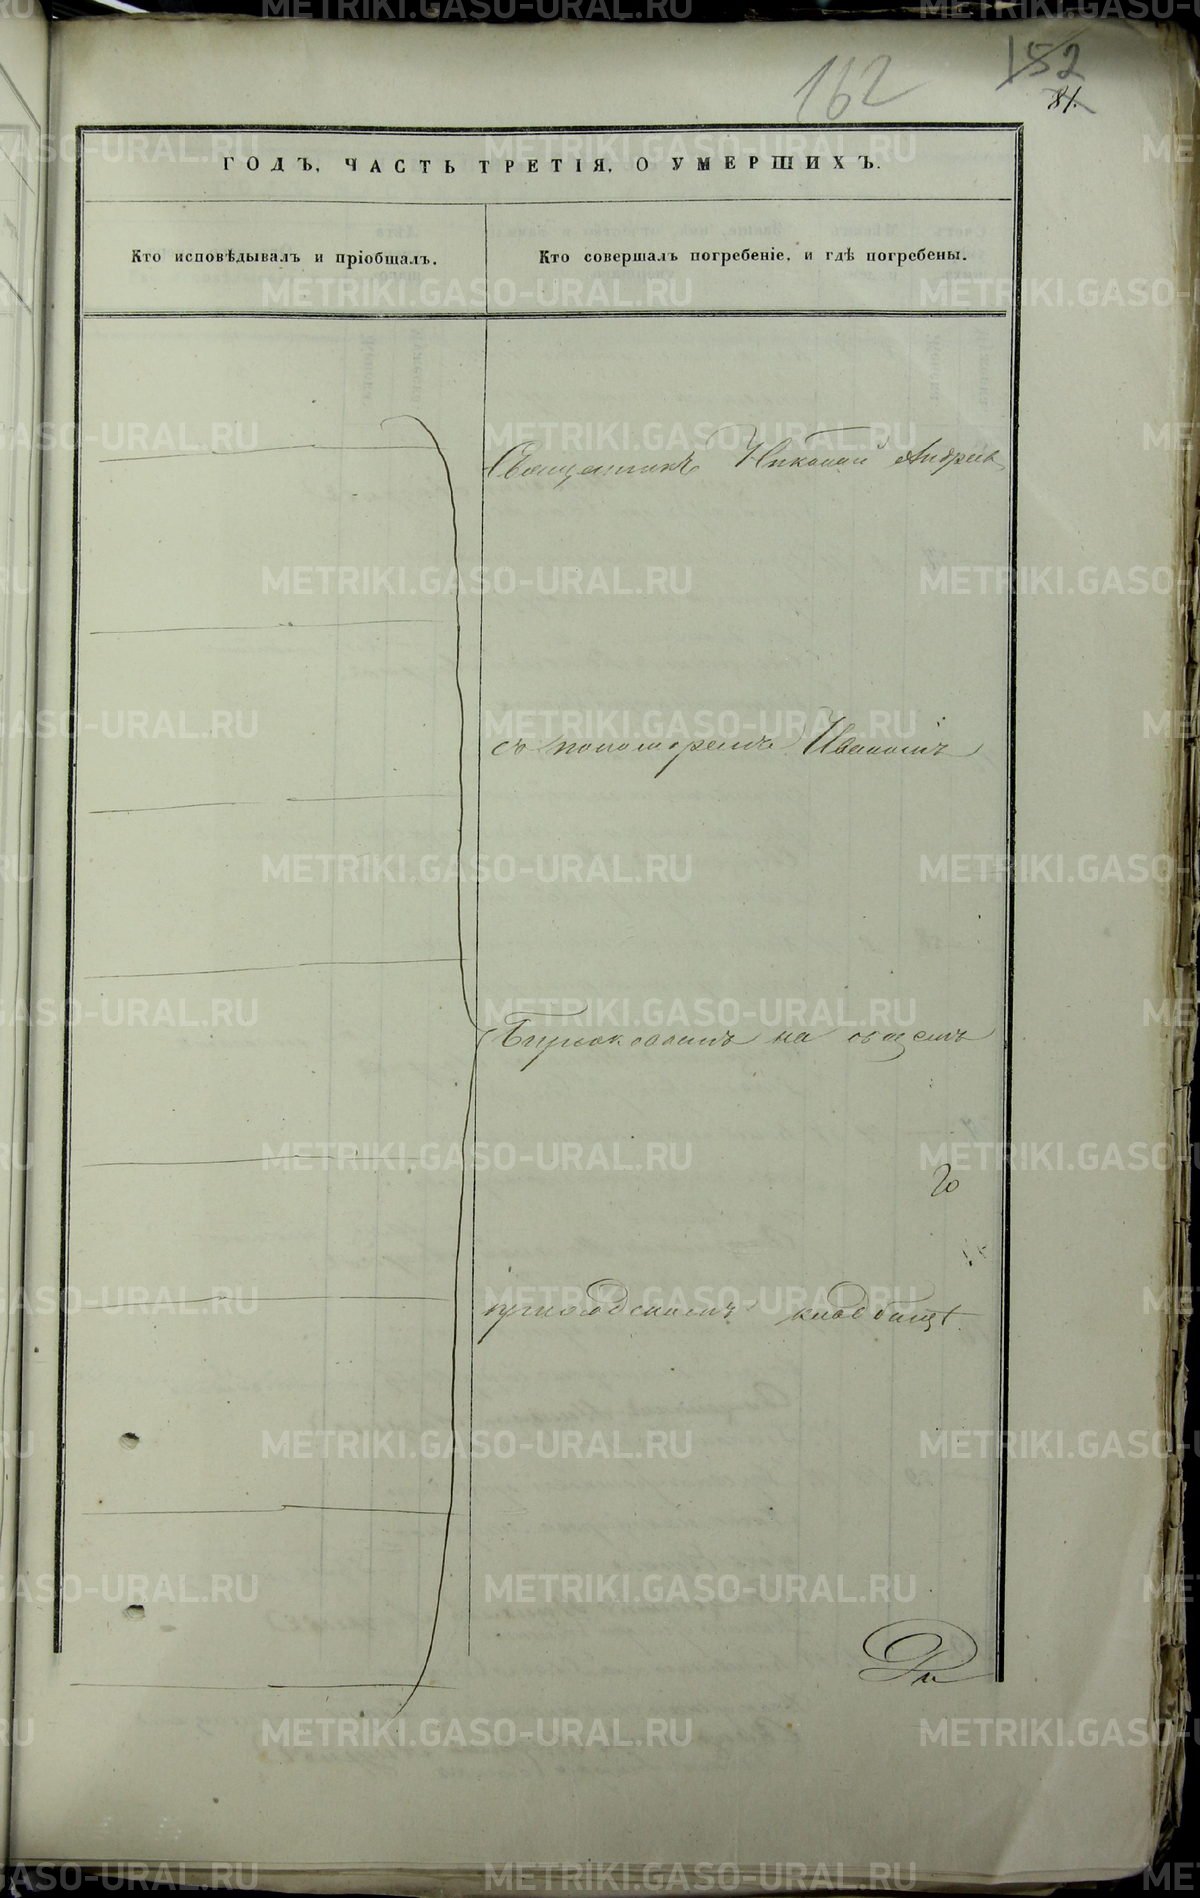 162
152
81.
ГОДЪ, ЧАСТЬ ТРЕТІЯ, О УМЕРШИХЪ.
Кто исповѣдывалъ и пріобщалъ.
Кто совершалъ погребеніе, и гдѣ погребены.
Священникъ Николай Андреевъ
съ пономаремъ Иваномъ
Бирюковымъ на общемъ
приходскомъ кладбищѣ
METRIKI.GASO-URAL.RU